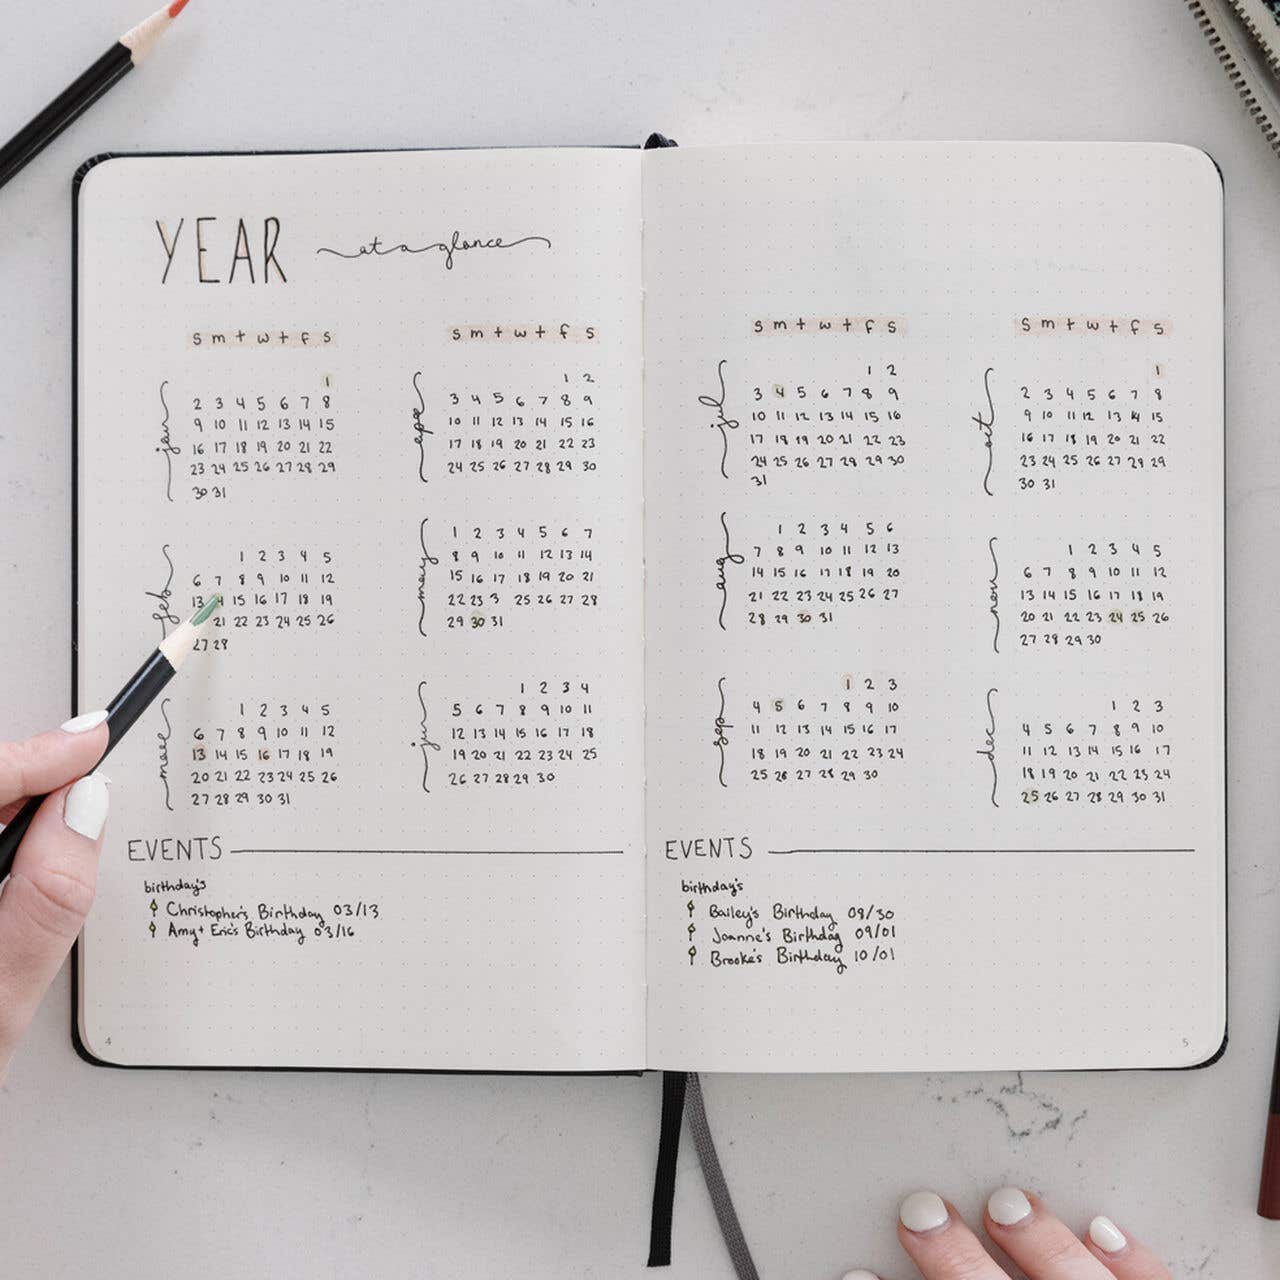 YEAR at a glance
s m t w t f s
jan
1
2 3 4 5 6 7 8
9 10 11 12 13 14 15
16 17 18 19 20 21 22
23 24 25 26 27 28 29
30 31
feb
1 2 3 4 5
6 7 8 9 10 11 12
13 4 15 16 17 18 19
21 22 23 24 25 26
27 28
mar
1 2 3 4 5
6 7 8 9 10 11 12
13 14 15 16 17 18 19
20 21 22 23 24 25 26
27 28 29 30 31
s m t w t f s
apr
1 2
3 4 5 6 7 8 9
10 11 12 13 14 15 16
17 18 19 20 21 22 23
24 25 26 27 28 29 30
may
1 2 3 4 5 6 7
8 9 10 11 12 13 14
15 16 17 18 19 20 21
22 23 3 25 26 27 28
29 30 31
jun
1 2 3 4
5 6 7 8 9 10 11
12 13 14 15 16 17 18
19 20 21 22 23 24 25
26 27 28 29 30
EVENTS
birthday's
Christopher's Birthday 03/13
Amy + Eric's Birthday 03/16
4
s m t w t f s
jul
1 2
3 4 5 6 7 8 9
10 11 12 13 14 15 16
17 18 19 20 21 22 23
24 25 26 27 28 29 30
31
aug
1 2 3 4 5 6
7 8 9 10 11 12 13
14 15 16 17 18 19 20
21 22 23 24 25 26 27
28 29 30 31
sep
1 2 3
4 5 6 7 8 9 10
11 12 13 14 15 16 17
18 19 20 21 22 23 24
25 26 27 28 29 30
s m t w t f s
oct
1
2 3 4 5 6 7 8
9 10 11 12 13 14 15
16 17 18 19 20 21 22
23 24 25 26 27 28 29
30 31
nov
1 2 3 4 5
6 7 8 9 10 11 12
13 14 15 16 17 18 19
20 21 22 23 24 25 26
27 28 29 30
dec
1 2 3
4 5 6 7 8 9 10
11 12 13 14 15 16 17
18 19 20 21 22 23 24
25 26 27 28 29 30 31
EVENTS
birthday's
Bailey's Birthday 08/30
Joanne's Birthday 09/01
Brooke's Birthday 10/01
5